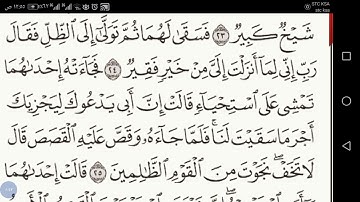 STC KSA
stc ksa
١٢:٥٥ ص
شَيْخٌ كَبِيرٌ ٢٣ فَسَقَىٰ لَهُمَا ثُمَّ تَوَلَّىٰٓ إِلَى ٱلظِّلِّ فَقَالَ
رَبِّ إِنِّى لِمَآ أَنزَلْتَ إِلَىَّ مِنْ خَيْرٍ فَقِيرٌ ٢٤ فَجَآءَتْهُ إِحْدَىٰهُمَا
تَمْشِى عَلَى ٱسْتِحْيَآءٍ قَالَتْ إِنَّ أَبِى يَدْعُوكَ لِيَجْزِيَكَ
أَجْرَ مَا سَقَيْتَ لَنَا ۚ فَلَمَّا جَآءَهُۥ وَقَصَّ عَلَيْهِ ٱلْقَصَصَ قَالَ
لَا تَخَفْ ۖ نَجَوْتَ مِنَ ٱلْقَوْمِ ٱلظَّٰلِمِينَ ٢٥ قَالَتْ إِحْدَىٰهُمَا